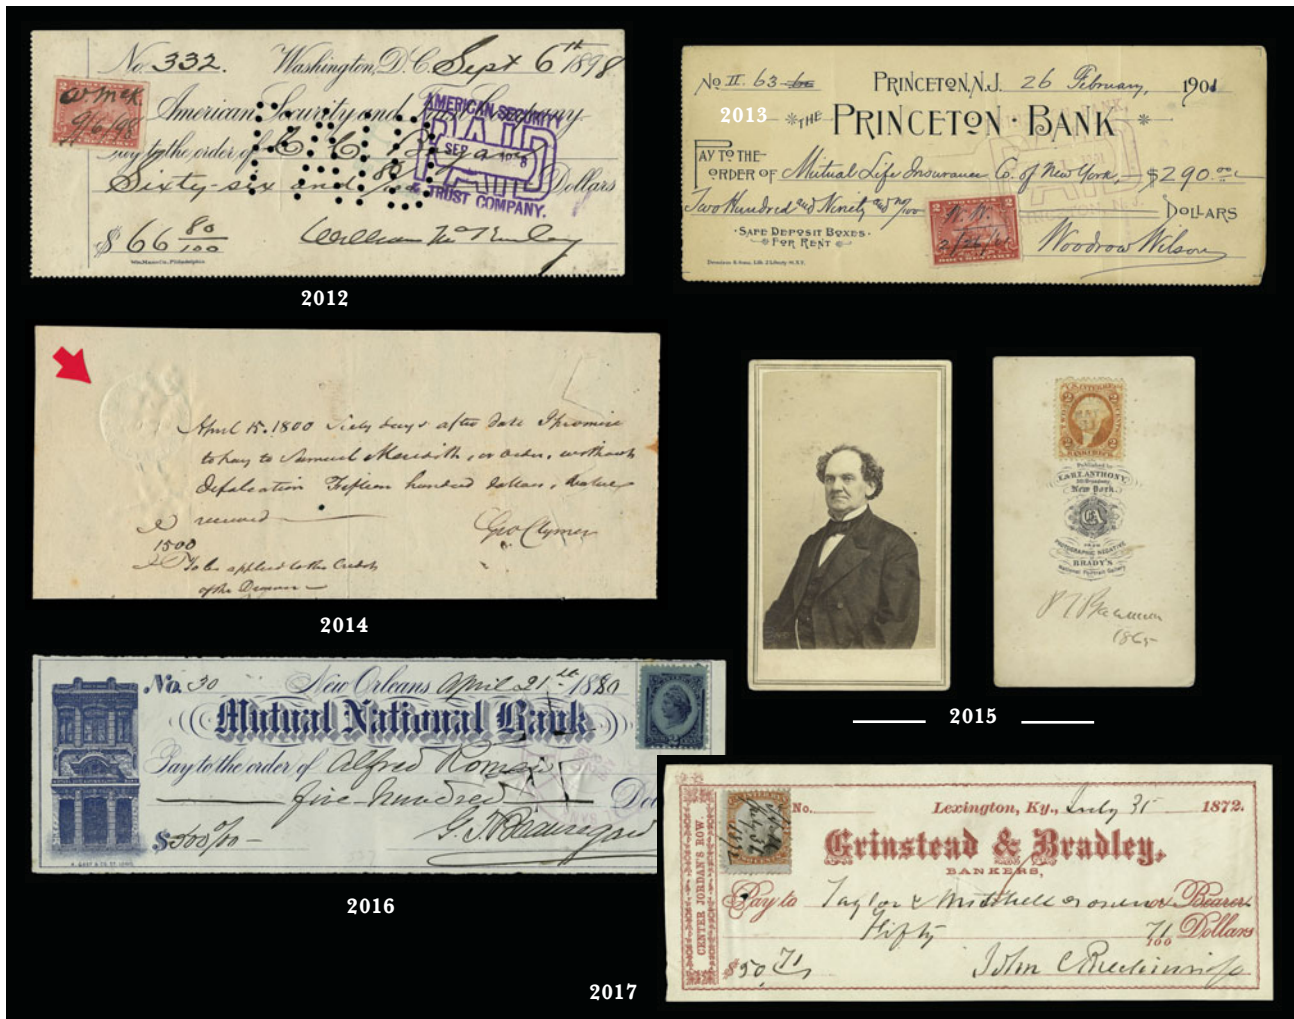 No. 332. Washington, D.C. Sept 6th 1898
2
W McK
9/6/98
American Security and Trust Company
Pay to the order of
Sixty-six and 80/100 Dollars
$ 66 80/100 William McKinley
AMERICAN SECURITY
PAID
SEP
& TRUST COMPANY.
2012
No II. 63 PRINCETON, N.J. 26 February, 1901
2013
THE PRINCETON · BANK
PAY TO THE
ORDER OF Mutual Life Insurance Co. of New York, $290.00
Two Hundred and Ninety and no/100 DOLLARS
· SAFE DEPOSIT BOXES ·
FOR RENT
2 2
W. W.
2/26/01
Woodrow Wilson
April 15. 1800 Sixty days after date I promise
to pay to Samuel Meredith, or order, without
defalcation Fifteen hundred dollars, value
received
Geo Clymer
1500
To be applied to the Credit
of the Drawer
2014
2 2
Published by
E. & H.T. ANTHONY,
New York.
FROM
PHOTOGRAPHIC NEGATIVE
BRADY'S
National Portrait Gallery
P T Barnum
1865
2015
No. 30 New Orleans April 21st 1880
Mutual National Bank
Pay to the order of Alfred Roman
five hundred Dol
$500/00 G. T. Beauregard
2016
CENTER JORDAN'S ROW.
No. Lexington, Ky., July 31 1872.
Grinstead & Bradley,
BANKERS,
Pay to Taylor & Mitchell or Bearer
Fifty 71/100 Dollars
$50.71 John C Breckinridge
2017